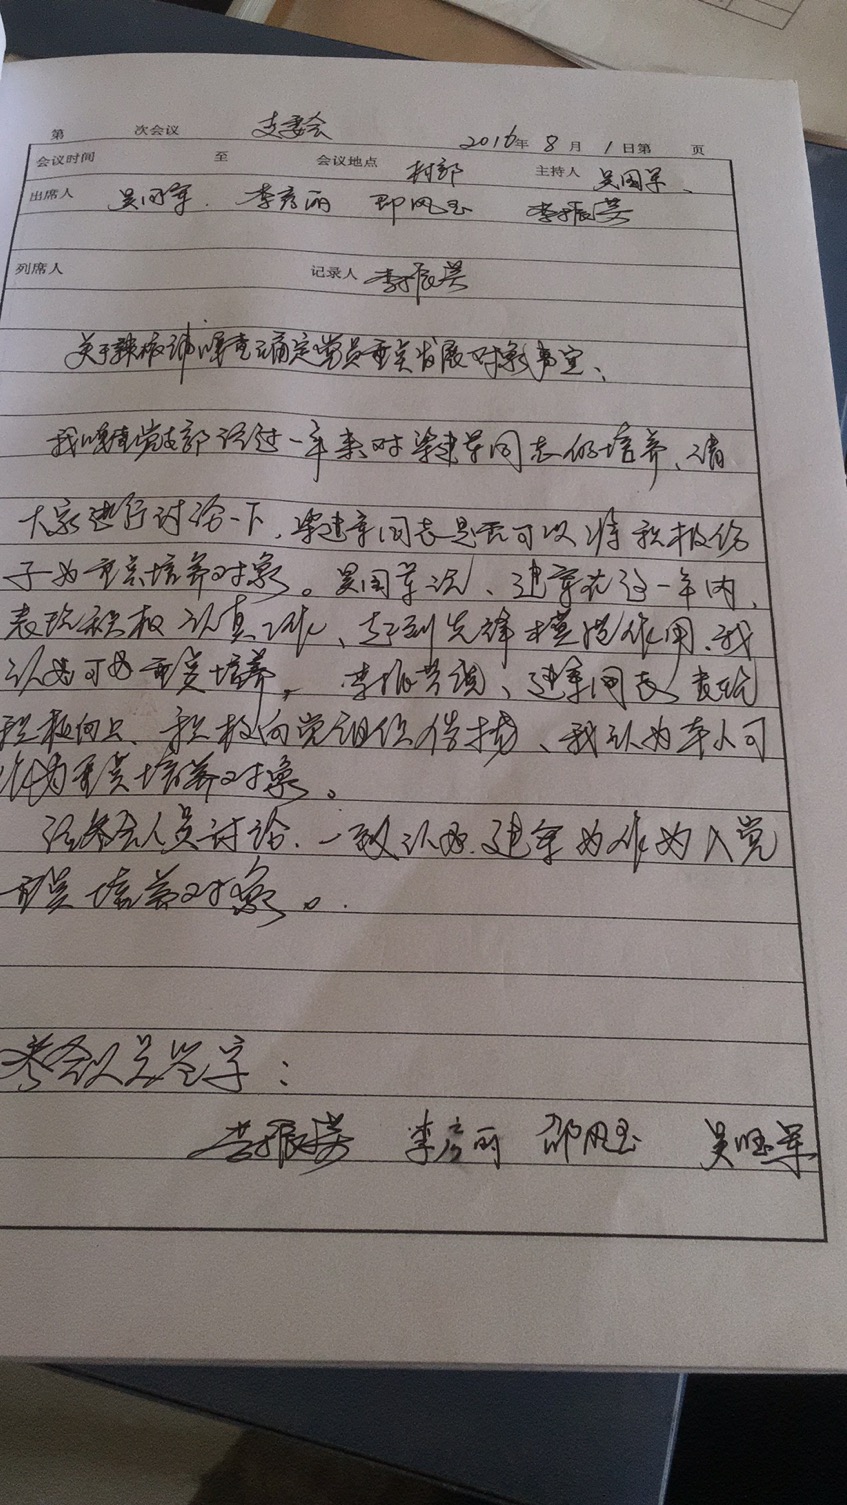 第 次会议 支委会 2016年8月1日第 页
会议时间 至 会议地点 村部 主持人 吴国军、
出席人 吴国军. 李彦丽 邵凤玉 李振芳
列席人 记录人 李振芳
关于 确定党员重点发展对象事宜、
我 党支部经过一年来对梁建军同志的培养、请
大家进行讨论一下,梁建军同志是否可以将积极份
子为重点培养对象。吴国军说、建军在这一年内、
表现积极认真工作、起到先锋模范作用、我
认为可为重点培养。李振芳说、建军同志表现
积极向上、积极向党组织靠拢、我认为本人可
作为重点培养对象。
经参会人员讨论、一致认为、建军为作为入党
重点培养对象。
参会人员签字:
李振芳 李彦丽 邵凤玉 吴国军